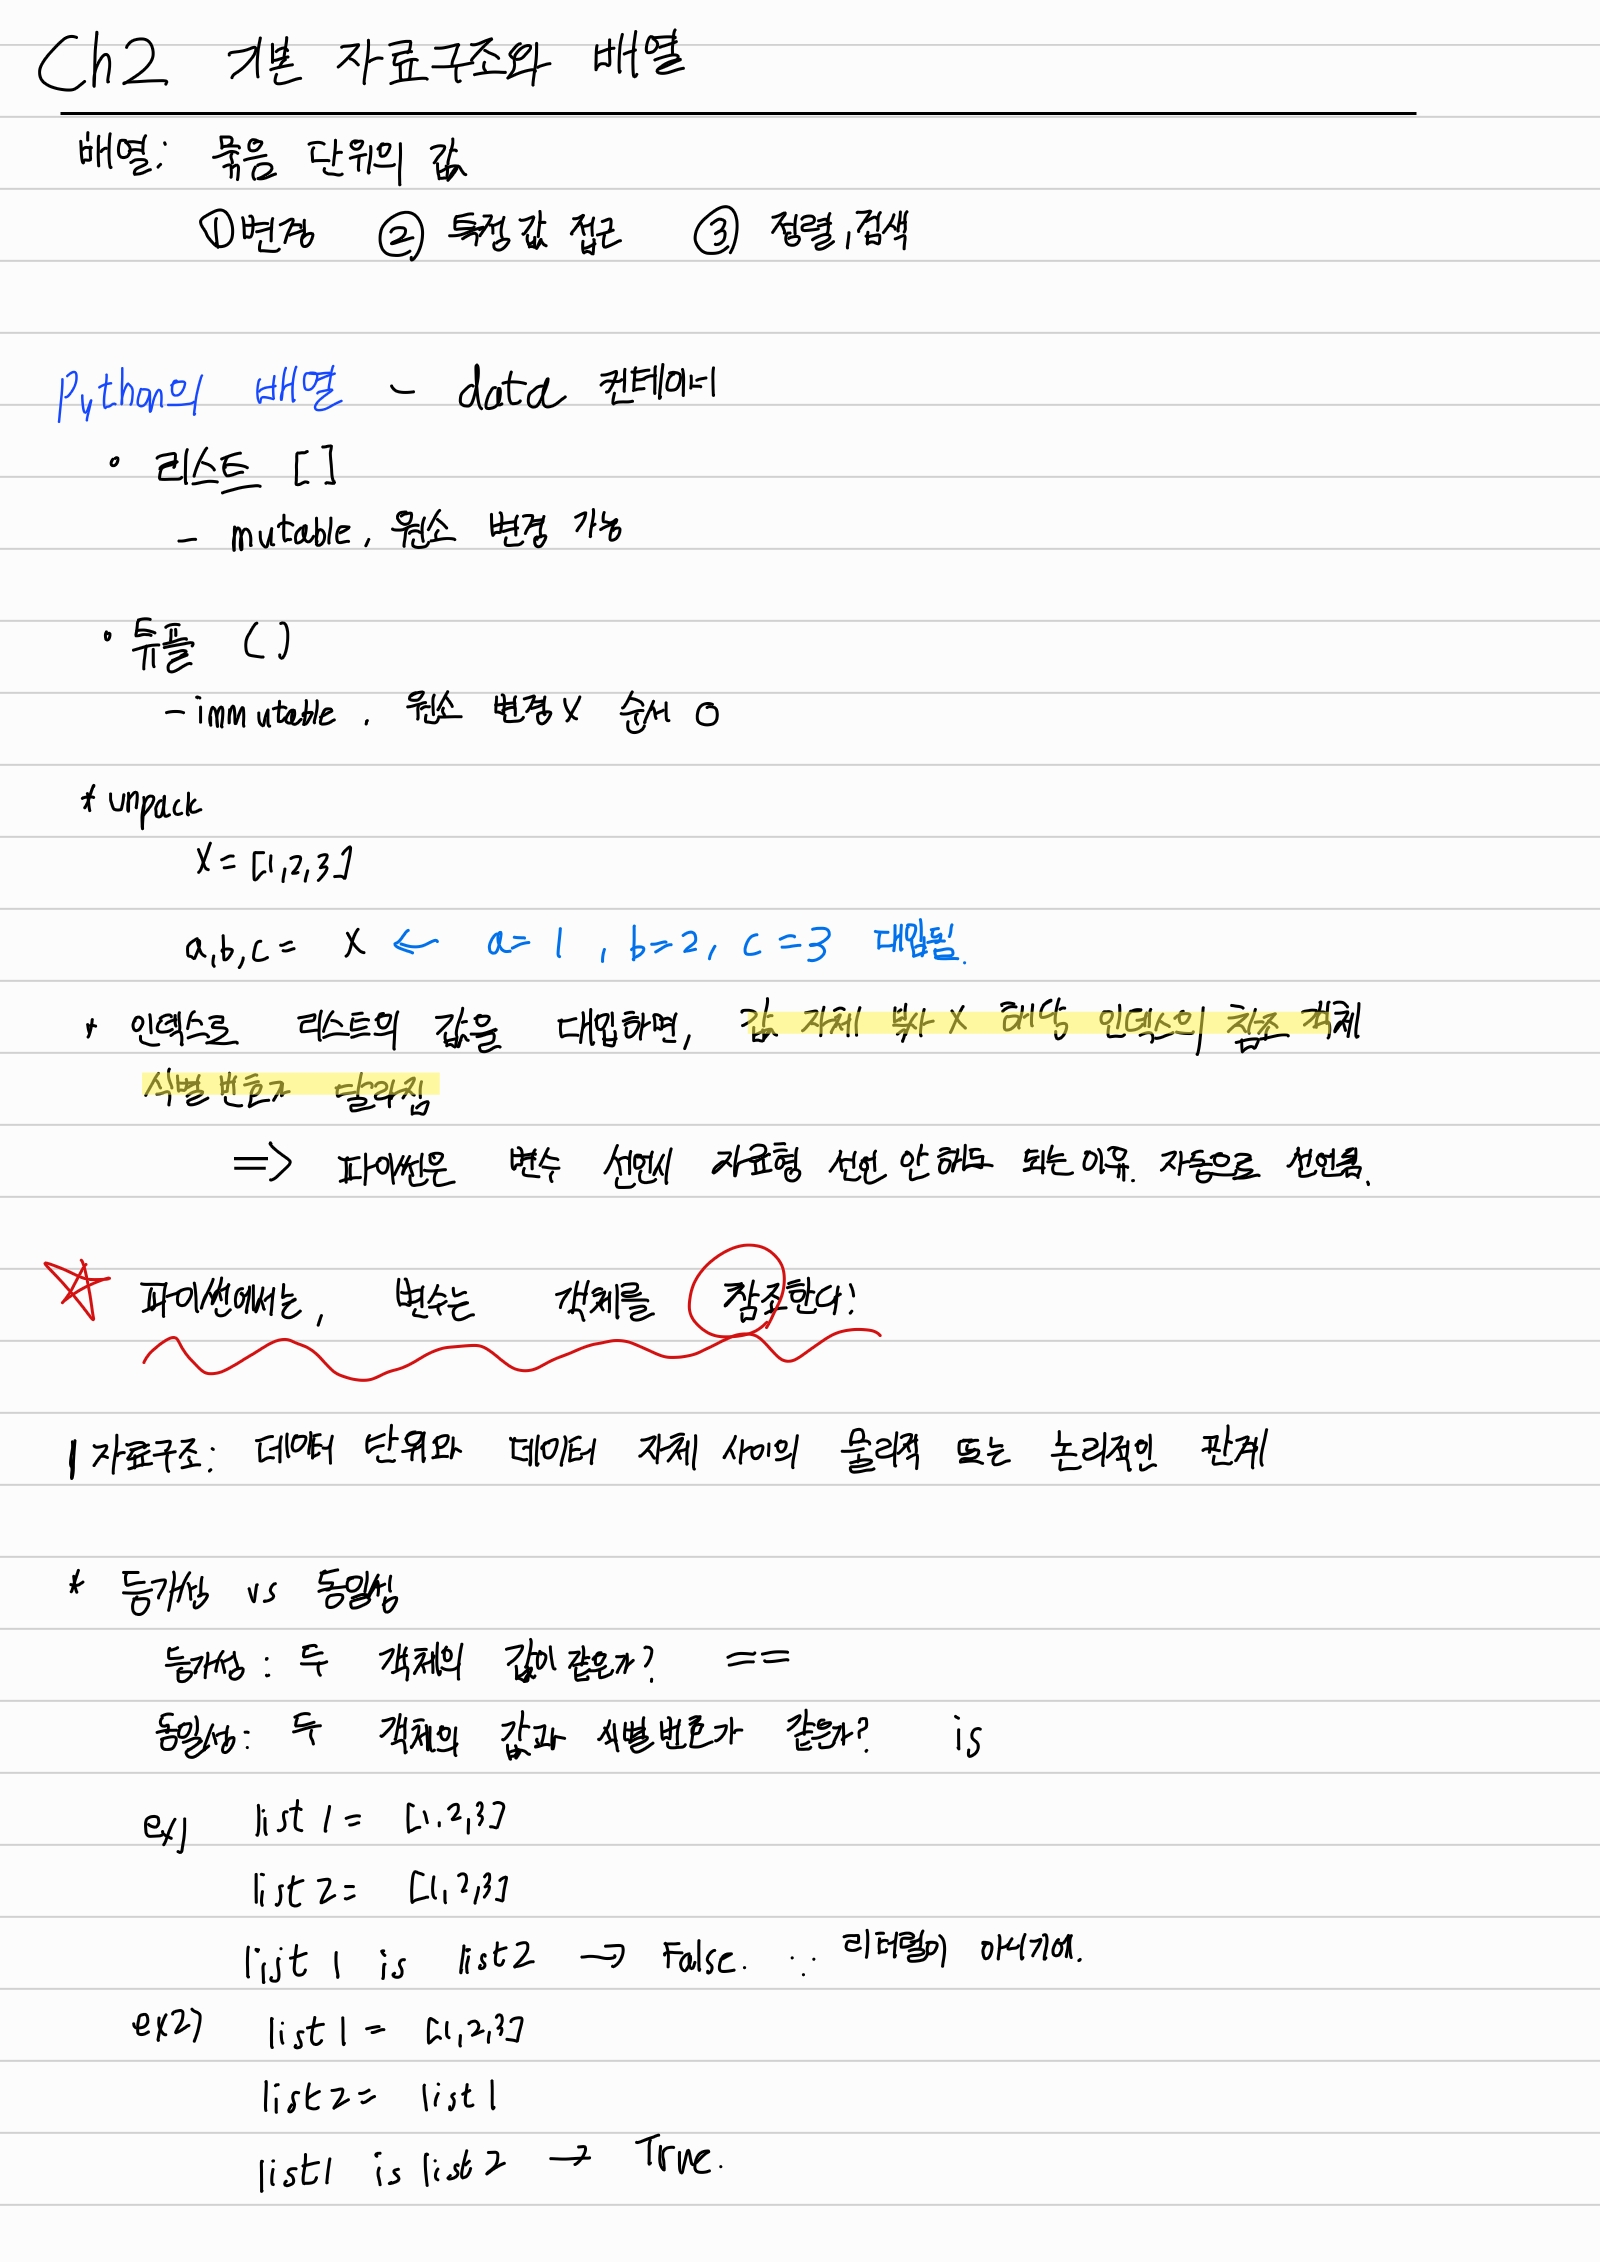 Ch2 기본 자료구조와 배열
배열: 묶음 단위의 값
① 변경 ② 특정 값 접근 ③ 정렬, 검색
Python의 배열 - data 컨테이너
• 리스트 []
- mutable, 원소 변경 가능
• 튜플 ()
- immutable. 원소 변경 X 순서 O
* unpack
x = [1,2,3]
a,b,c = x ← a=1, b=2, c=3 대입됨.
* 인덱스로 리스트의 값을 대입하면, 값 자체 복사 X 해당 인덱스의 참조 객체
식별 번호가 달라짐
=> 파이썬은 변수 선언시 자료형 선언 안 해도 되는 이유. 자동으로 선언됨.
☆ 파이썬에서는, 변수는 객체를 참조한다!
| 자료구조: 데이터 단위와 데이터 자체 사이의 물리적 또는 논리적인 관계
* 등가성 vs 동일성
등가성: 두 객체의 값이 같은가? ==
동일성: 두 객체의 값과 식별 번호가 같은가? is
ex) list1 = [1.2,3]
list2 = [1,2,3]
list1 is list2 → False. ∵ 리터럴이 아니기에.
ex2) list1 = [1,2,3]
list2 = list1
list1 is list2 → True.